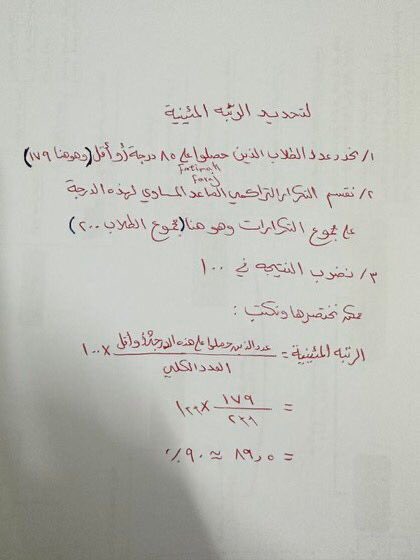 لتحديد الرتبه المئينية
١/ نحدد عدد الطلاب الذين حصلوا على ٨٥ درجة أو أقل (وهو هنا ١٧٩)
Fatimah
Faraj
٢/ نقسم التكرار التراكمي الصاعد المساوي لهذه الدرجة
على مجموع التكرارات وهو هنا (مجموع الطلاب ٢٠٠)
٣/ نضرب النتيجه في ١٠٠
ممكن نختصرها ونكتب :
الرتبه المئينية = عدد الذين حصلوا على هذه الدرجة أو أقل / العدد الكلي × ١٠٠
= ١٧٩ / ٢٠٠ × ١٠٠
= ٨٩,٥ ≈ ٩٠٪